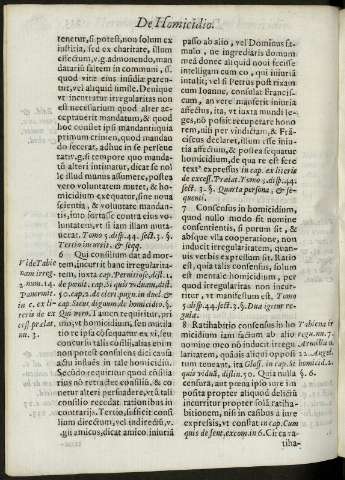 De Homicidio.
tenetur, si potest, non solum ex
iustitia, sed ex charitate, illum
effectum, v.g. admonendo, man
datariū saltem in communi, sl.
quod vitæ eius insidiæ paren-
tur, vel aliquid simile. Denique
vt incurratur irregularitas non
est necessarium quod alter ac-
ceptauerit mandatum, & quod
hoc constet ipsi mandanti quia
primum crimen, quod mandan
do fecerat, adhuc in se perseue
rat
alteri intimatur, dicat se nol
le illud munus assumere, postea
vero voluntatem mutet, & ho-
micidium exequatur, sine noua
scientia, & voluntate mandan-
tis, imo forte contra eius vo-
luntatem, vt si iam illam muta-
uerat. Tomo 5. disp. 44. sect. 3. §.
Tertio inuenit. & seqq.
6 Qui consilium dat ad mor-
tem, incurrit hanc irregularita-
tem, iuxta cap.
de pœnit. cap. Si quis viduam, dist.
50. cap. 2. de cler. pugn. in duel.
cap. Sicut dignum, de homicidio. §.
Qui vero. Tamen requiritur, pri
mo, vt homicidium, seu mutila
tio re ipsa consequatur ex
consilij, alias enim
non potest censeri dici causa
actu influēs in tale homicidiū.
Secūdo requiritur quod consilia
rius nō retractet consiliū, & co
netur alteri persuadere, vt à tali
consilio recedat rationibus in
contrarijs. Tertio, sufficit consi
lium directum, vel indirectū, v.
g. si amicus, dicat amico iniuriā
Vide Tabie
nam irreg.
2. num. 14.
Panormit.
in c. ex li-
teris de ex
cess. prælat.
nu. 3.
passo ab alio, vel Dominus fa-
mulo, ne ingrediaris domum
meā donec aliquid noui fecisse
intelligam cum eo, qui iniuriā
intulit, vel si Petrus post rixam
cum Ioanne, consulat Francis-
cum, an vere manserit iniuria
affectus, ita, vt iuxta mundi le-
ges, nō possit recuperare hono
rem, nisi per vindictam, & Frā-
ciscus declaret, illum esse iniu-
ria affectum, & postea sequatur
homicidium, de qua re est fere
textꝰ expressus in cap. ex literis
de excess. Prælat. Tomo 5. disp. 44.
sect. 3. §. Quarta persona, & se-
quenti.
7 Consensus in homicidium,
quod nullo modo sit nomine
consentientis, si porum sit, &
absque vlla cooperatione, non
inducit irregularitatem, quam-
uis verbis expressum sit. Ratio
est, quia talis consensus, solum
est mentale homicidium, per
quod irregularitas non incur-
ritur, vt manifestum est. Tomo
5. disp. 44. sect. 3. §. Dua igitur re-
gula.
8 Ratihabitio consensus in ho
micidium iam factum ab alio
nomine meo nō inducit irregu
laritatem, quāuis aliqui opposi
tum teneant, ita Gloss. in cap. Si
quis viduā, distin. 50. Quia nulla
censura, aut pœna ipso iure im
posita propter aliquod delictū
incurritur propter solā ratiha-
bitionem, nisi in casibus à iure
expressis, vt constat in cap. Cum
quis de sent. excom. in 6. Circa ra-
Tabiena ir
reg. nu. 7.
Armilla n.
22. Angel.
homicid. 2.
§. 6.
tiha-